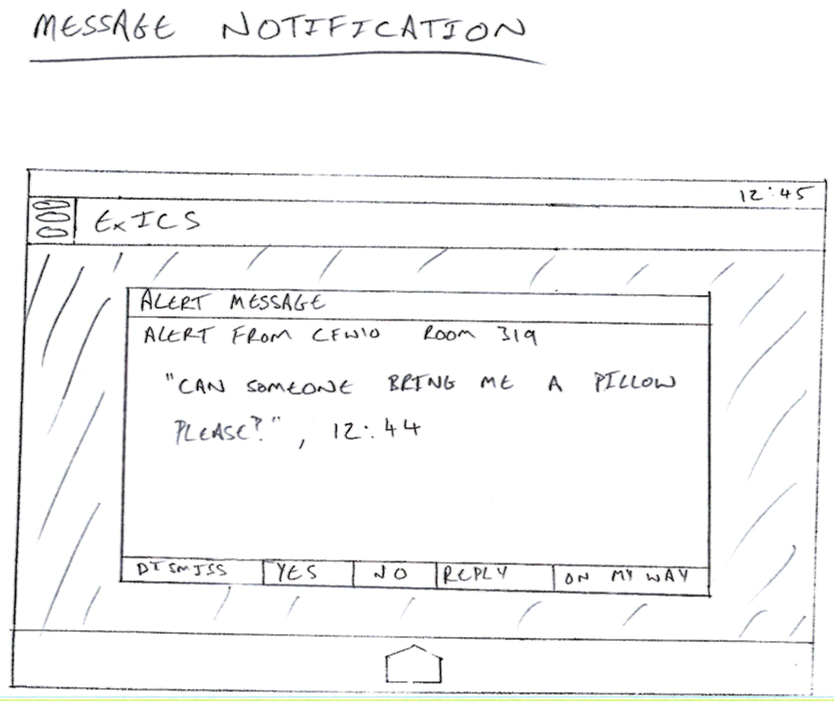 MESSAGE NOTIFICATION
12:45
ExICS
ALERT MESSAGE
ALERT FROM CFW10 ROOM 319
"CAN SOMEONE BRING ME A PILLOW
PLEASE?", 12:44
DISMISS YES NO REPLY ON MY WAY